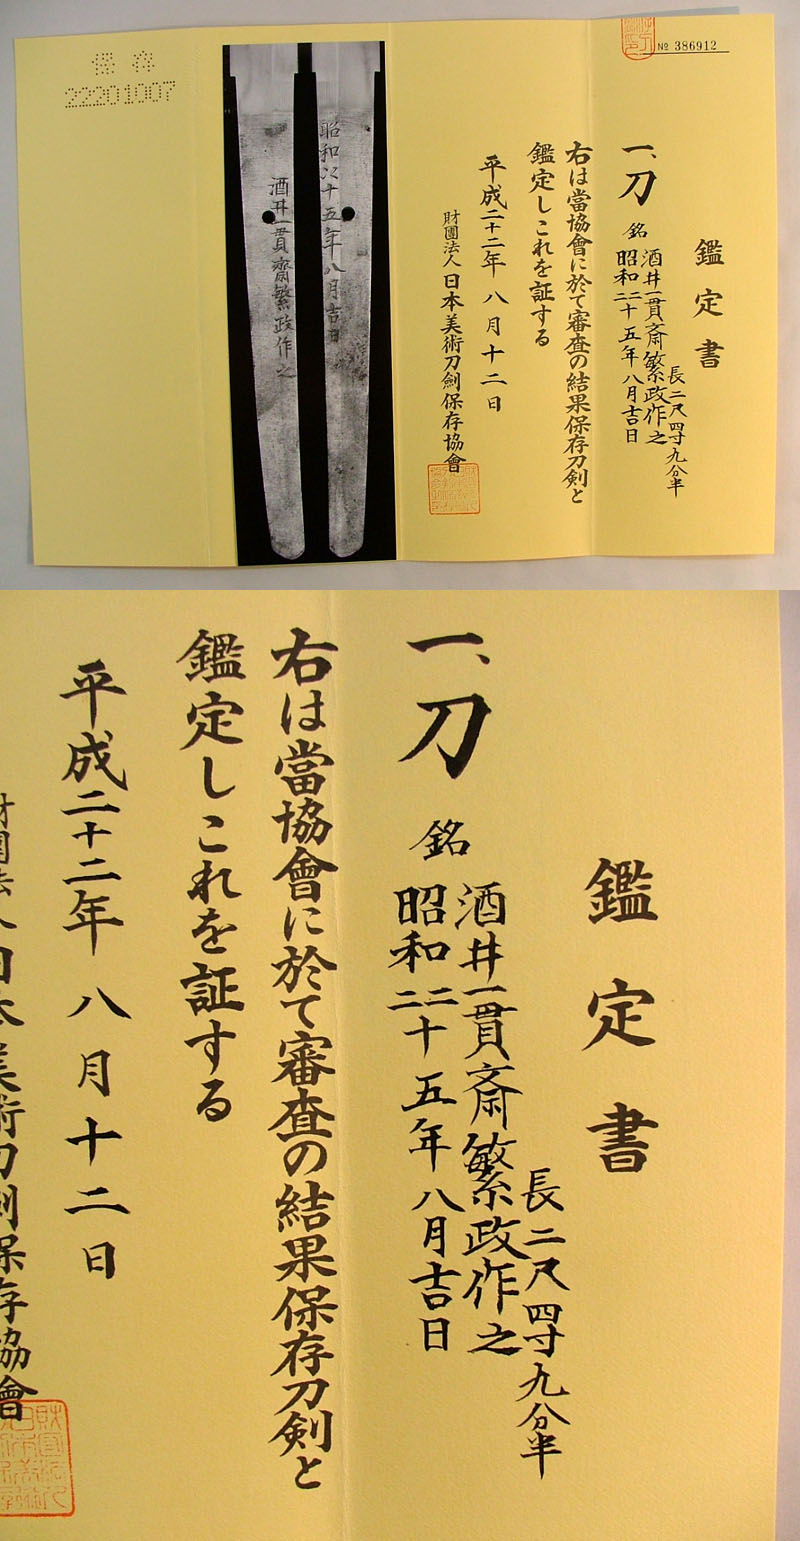 № 386912
鑑定書
長二尺四寸九分半
一、刀 銘 酒井一貫斎繁政作之
昭和二二十五年八月吉日
右は當協會に於て審査の結果保存刀剣と
鑑定しこれを証する
平成二十二年八月十二日
財團法人日本美術刀劍保存協會
昭和二二十五年八月吉日
酒井一貫齋繁政作之
保存
22201007
鑑定書
長二尺四寸九分半
一、刀 銘 酒井一貫斎繁政作之
昭和二二十五年八月吉日
右は當協會に於て審査の結果保存刀剣と
鑑定しこれを証する
平成二十二年八月十二日
財團法人日本美術刀劍保存協會